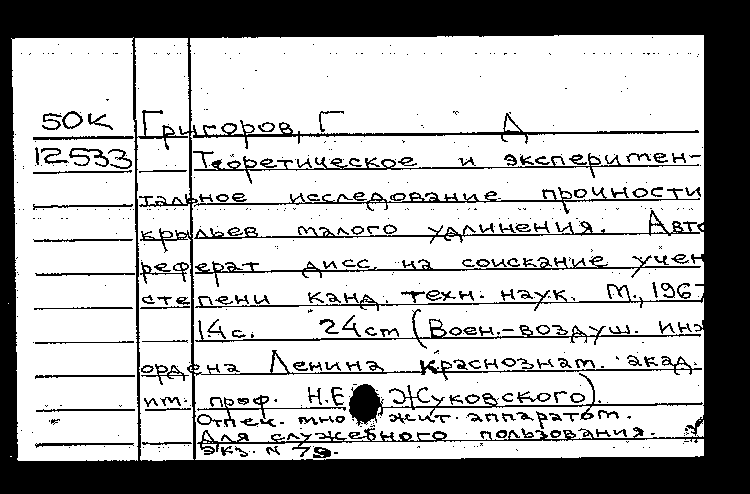 50К Григоров, Г Д
12533 Теоретическое и эксперимен-
тальное исследование прочности
крыльев малого удлинения. Авто
реферат дисс. на соискание учен
степени канд. техн. наук. М., 1967
14с. 24cm (Воен.-воздуш. инж
ордена Ленина краснознам. акад.
им. проф. Н.Е Жуковского).
Отпеч. множит. аппаратом.
Для служебного пользования.
Экз. N 79.